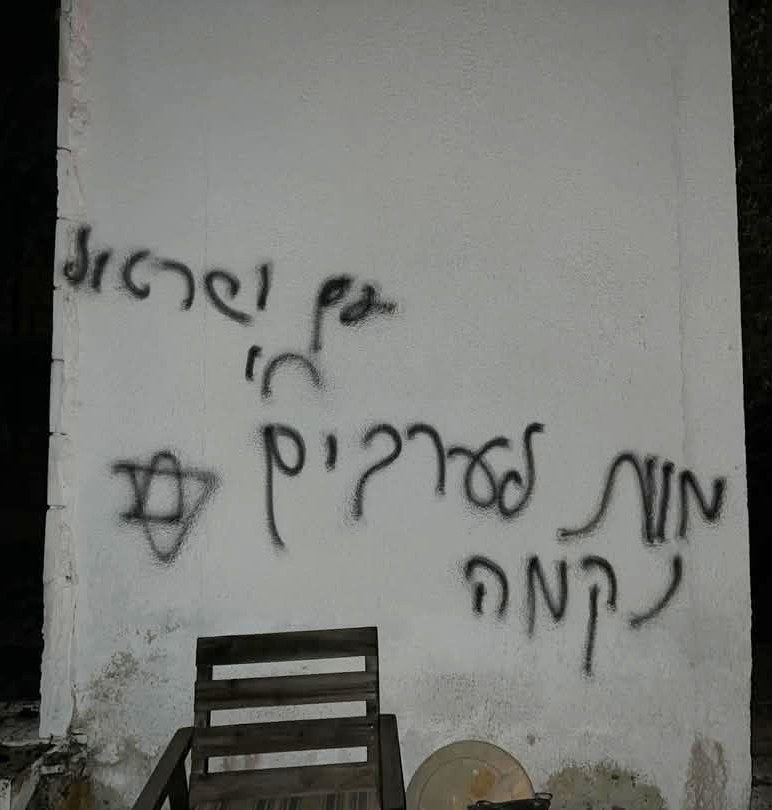 עם ישראל
חי
מוות לערבים
נקמה